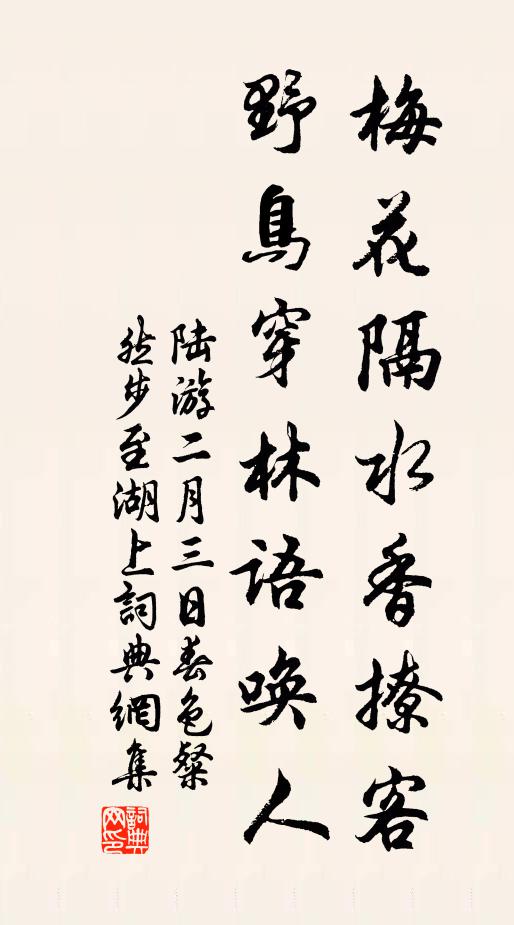 梅花隔水香撩客
野鳥穿林語唤人
陸游二月三日春色粲
然步至湖上詞典網集
詞典
网印